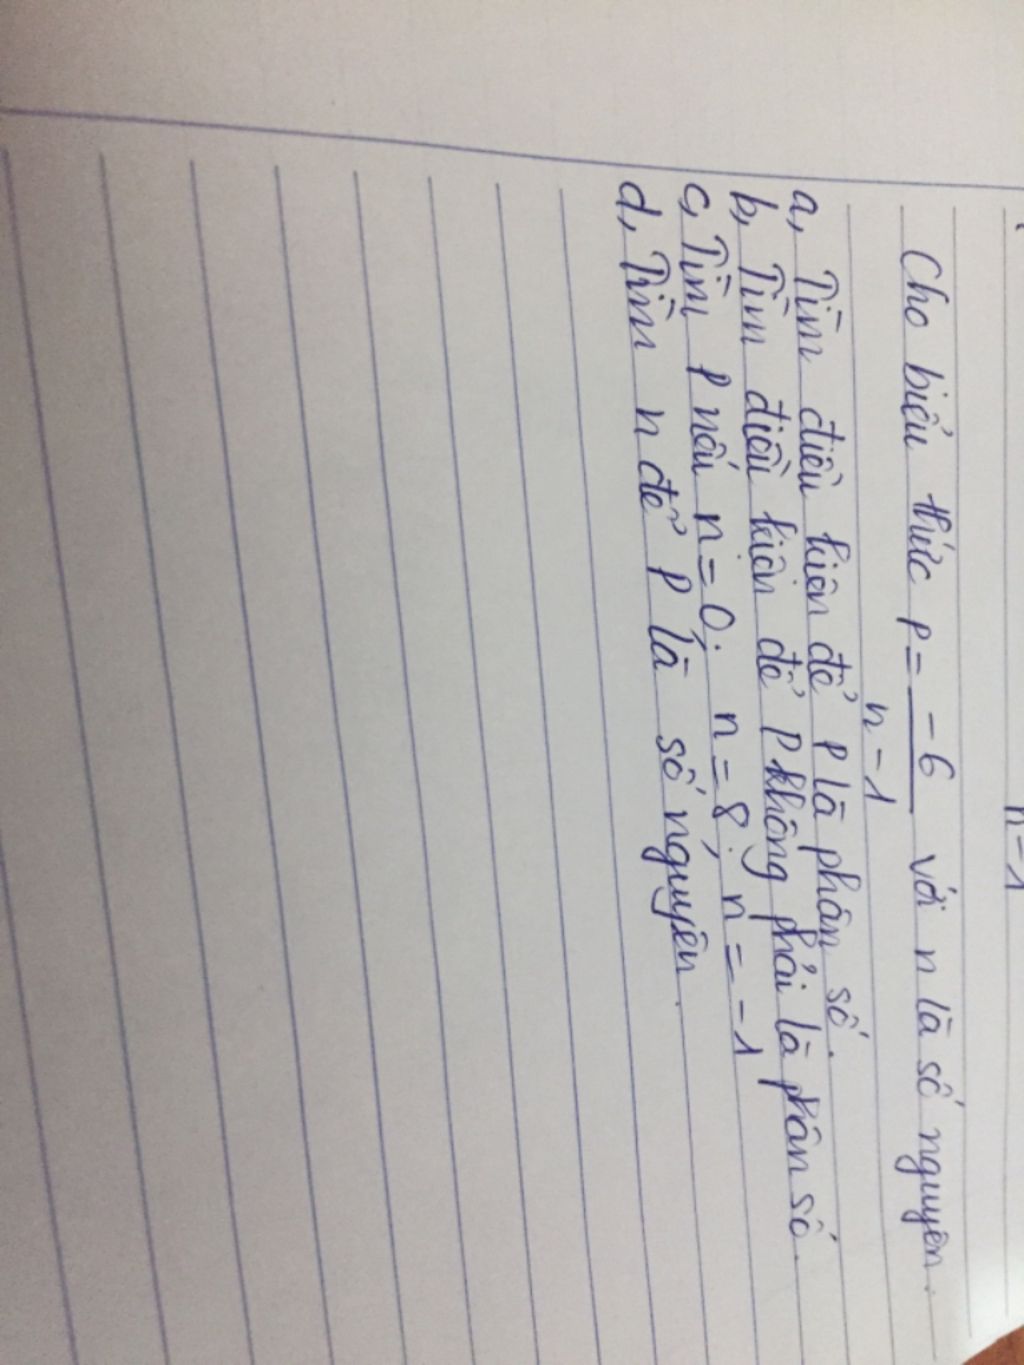 n-1
Cho biểu thức P = -6 với n là số nguyên.
n-1
a, Tìm điều kiện để P là phân số.
b, Tìm điều kiện để P không phải là phân số.
c, Tìm P nếu n=0; n=8; n=-1
d, Tìm n để P là số nguyên.